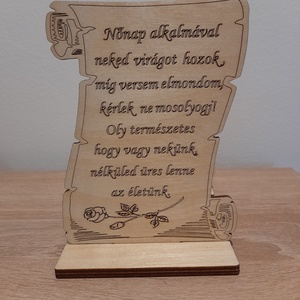 Nőnap alkalmával
neked virágot hozok,
míg versem elmondom,
kérlek ne mosolyogj!
Oly természetes
hogy vagy nekünk,
nélküled üres lenne
az életünk.